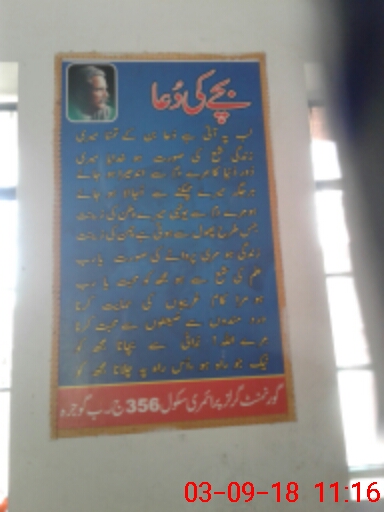 بچے کی دُعا
لب پہ آتی ہے دُعا بن کے تمنا میری
زندگی شمع کی صورت ہو خدایا میری
دُور دُنیا کا مرے دم سے اندھیرا ہو جائے
ہر جگہ میرے چمکنے سے اُجالا ہو جائے
ہو مرے دم سے یونہی میرے وطن کی زینت
جس طرح پھول سے ہوتی ہے چمن کی زینت
زندگی ہو مری پروانے کی صورت یا رب
علم کی شمع سے ہو مجھ کو محبت یا رب
ہو مرا کام غریبوں کی حمایت کرنا
درد مندوں سے ضعیفوں سے محبت کرنا
مرے اللہ! بُرائی سے بچانا مجھ کو
نیک جو راہ ہو اُس راہ پہ چلانا مجھ کو
گورنمنٹ گرلز پرائمری سکول 356 ج ب گوجرہ
03-09-18 11:16